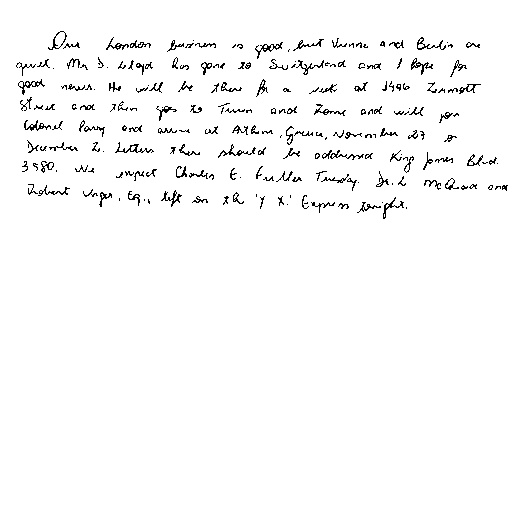 Our London business is good, but Vienna and Berlin are
quiet. Mr. D. Lloyd has gone to Switzerland and I hope for
good news. He will be there for a week at 1496 Zermott
Street and then goes to Turin and Rome and will join
Colonel Parry and arrive at Athens, Greece, November 27 or
December 2. Letters there should be addressed King James Blvd.
3580. We expect Charles E. Fuller Tuesday. Dr. L. McQuaid and
Robert Unger, Esq., left on the 'Y X.' Express tonight.